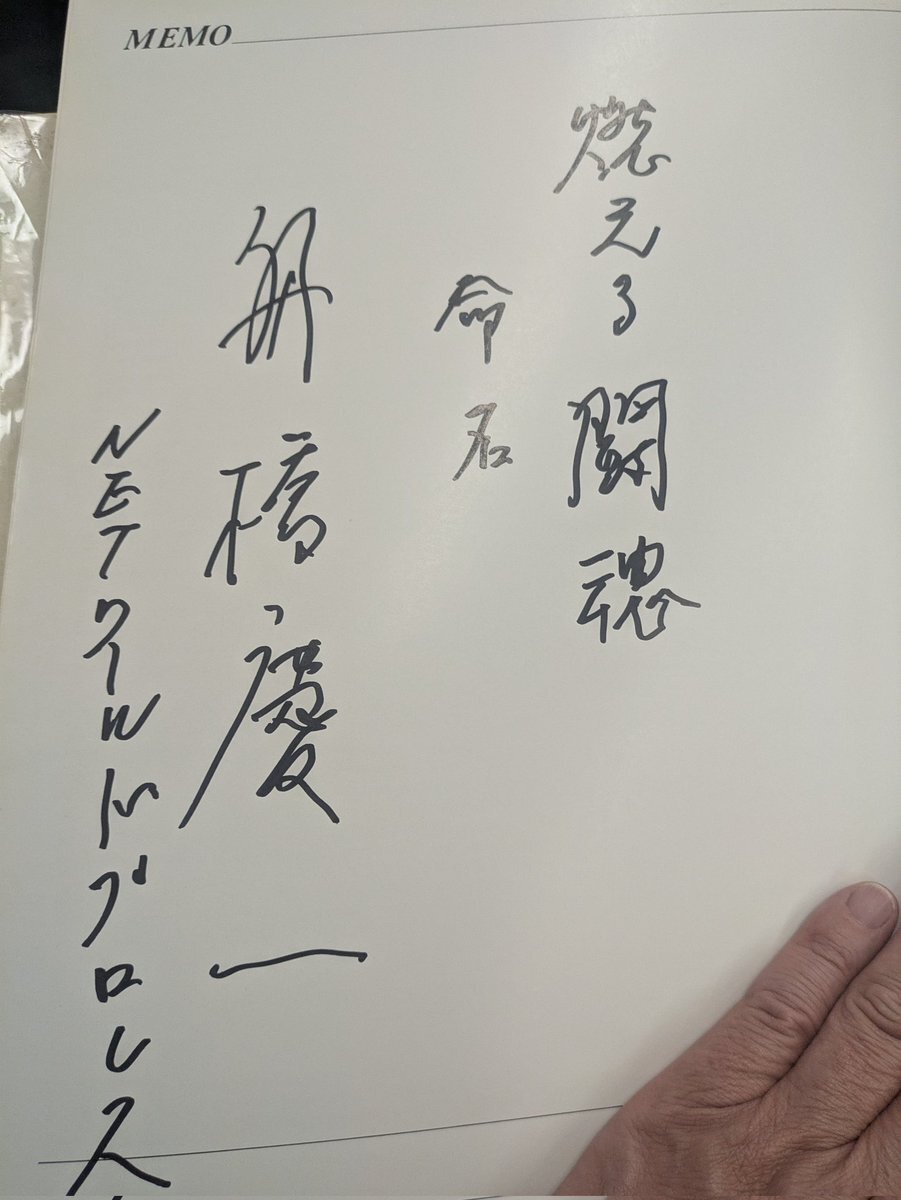 MEMO
燃える闘魂
命名
舟橋慶一
NETワールドプロレス